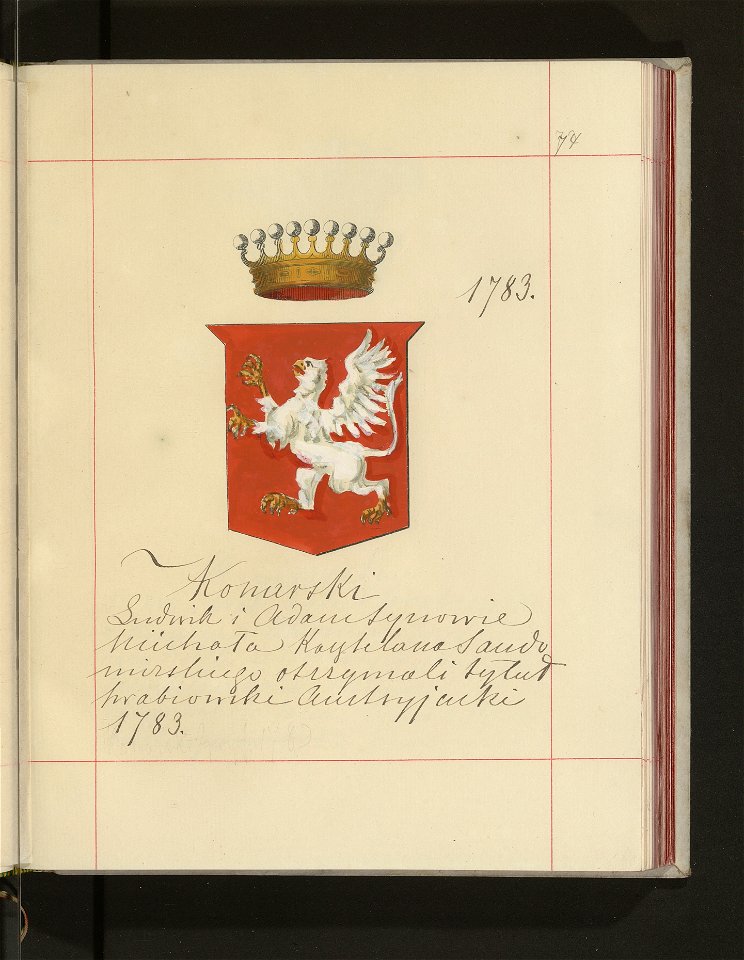 74
1783.
Konarski
Ludwik i Adam synowie
Michała Kasztelana Sando
mirskiego otrzymali tytuł
hrabiowski Austryjacki
1783.